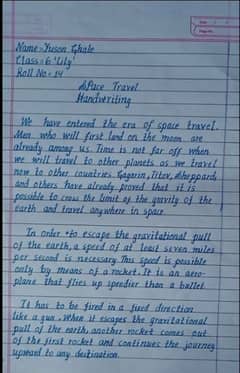 Name:- Yuson Ghale
Class:- 6 'Lily'
Roll No:- 14
Space Travel
Handwriting
We have entered the era of space travel.
Men who will first land on the moon are
already among us. Time is not far off when
we will travel to other planets as we travel
now to other countries. Gagarin, Titov, Sheppards
and others have already proved that it is
possible to cross the limit of the gravity of the
earth and travel anywhere in space.
In order to escape the gravitational pull
of the earth, a speed of at least seven miles
per second is necessary. This speed is possible
only by means of a rocket. It is an aero-
plane that flies up speedier than a bullet.
It has to be fired in a fixed direction
like a gun. When it escapes the gravitational
pull of the earth, another rocket comes out
of the first rocket and continues the journey
upward to any destination.